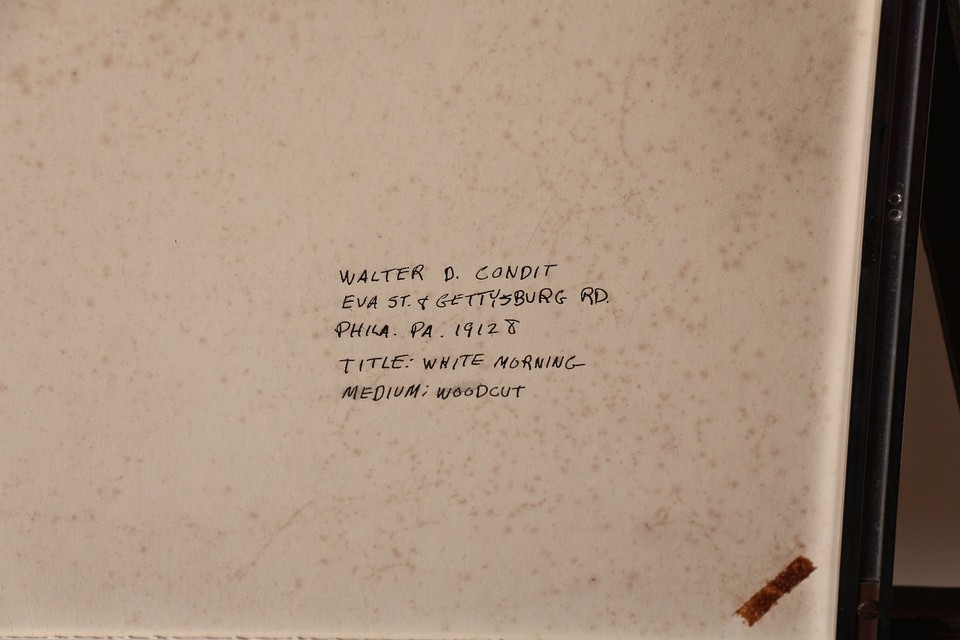 WALTER D. CONDIT
EVA ST. & GETTYSBURG RD.
PHILA. PA. 19128
TITLE: WHITE MORNING
MEDIUM: WOODCUT